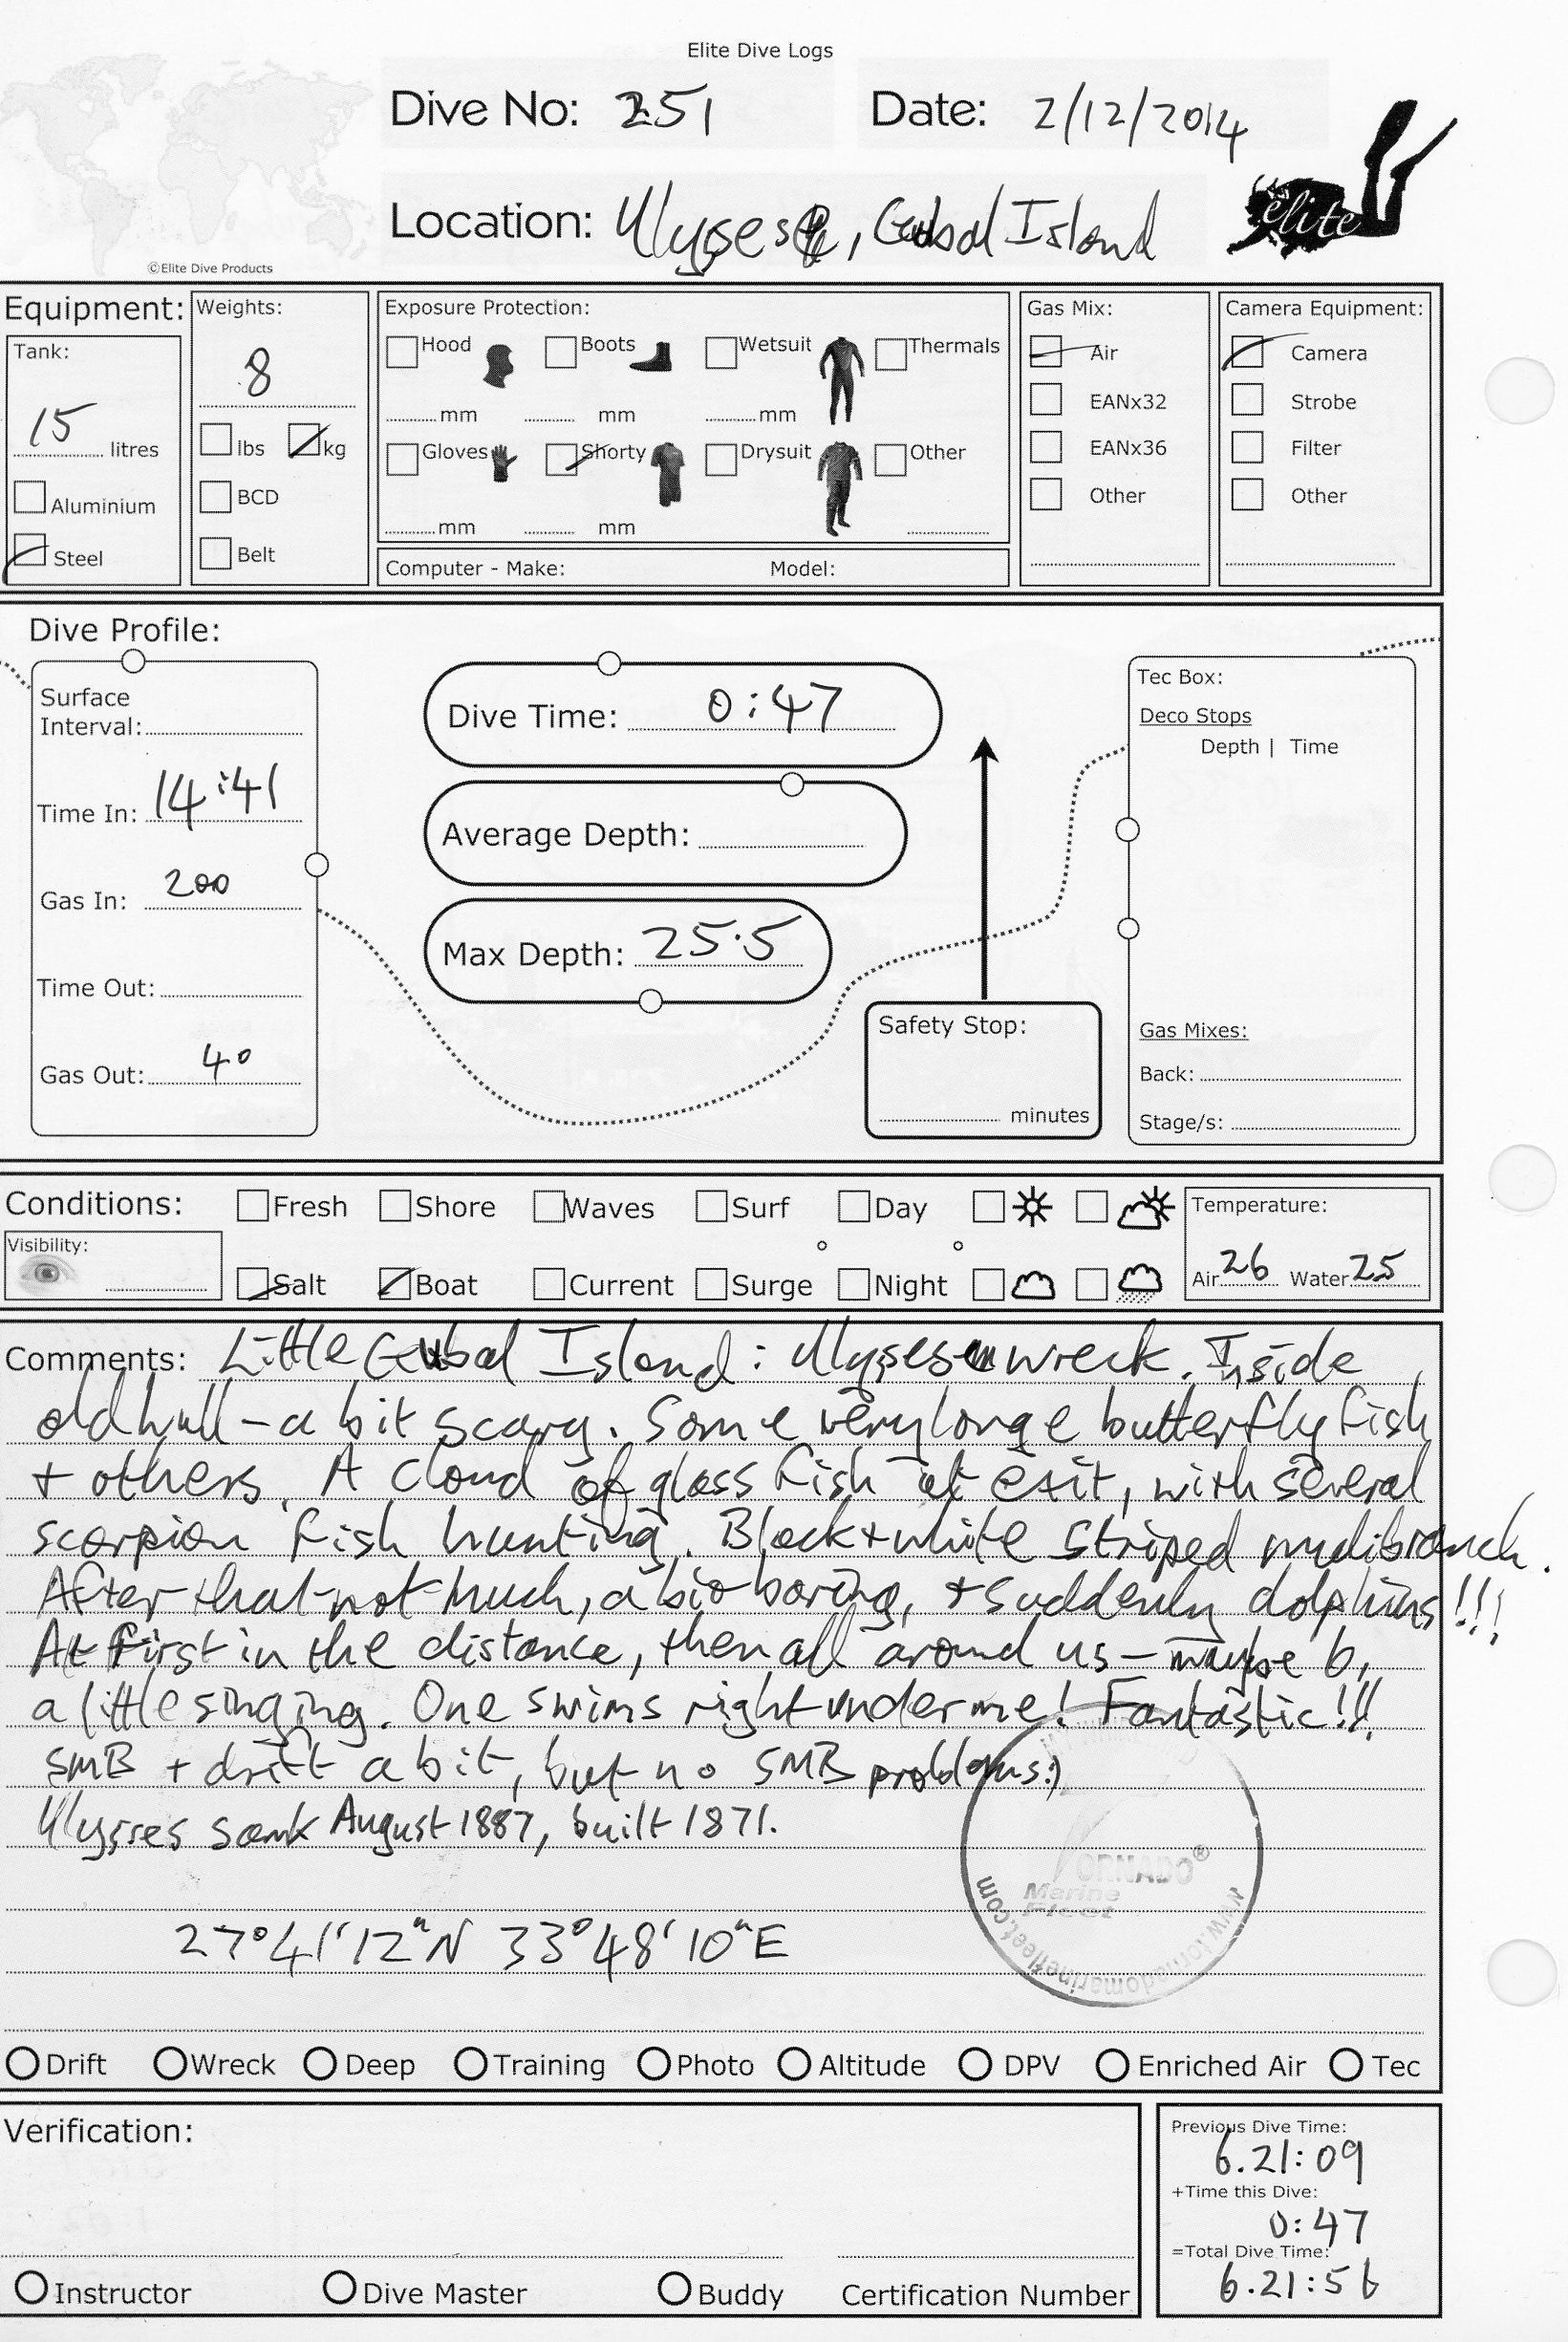 Elite Dive Logs
Dive No: 251 Date: 2/12/2014
Location: Ulysses, Gubal Island
elite
©Elite Dive Products
Equipment:
Tank:
15 litres
Aluminium
Steel
Weights:
8
lbs kg
BCD
Belt
Exposure Protection:
Hood Boots Wetsuit Thermals
mm mm mm
Gloves Shorty Drysuit Other
mm mm
Computer - Make: Model:
Gas Mix:
Air
EANx32
EANx36
Other
Camera Equipment:
Camera
Strobe
Filter
Other
Dive Profile:
Surface
Interval:
Time In: 14:41
Gas In: 200
Time Out:
Gas Out: 40
Dive Time: 0:47
Average Depth:
Max Depth: 25.5
Safety Stop:
minutes
Tec Box:
Deco Stops
Depth | Time
Gas Mixes:
Back:
Stage/s:
Conditions: Fresh Shore Waves Surf Day
Visibility:
Salt Boat Current Surge Night
Temperature:
Air 26 Water 25
Comments: Little Gubal Island: Ulysses wreck. Inside
old hull - a bit scary. Some very large butterfly fish
+ others. A cloud of glass fish at exit, with several
scorpion fish hunting. Black + white striped nudibranch.
After that not much, a bit boring, + suddenly dolphins!!!
At first in the distance, then all around us - maybe 6,
a little singing. One swims right under me! Fantastic!!!
SMB + drift a bit, but no SMB problems:)
Ulysses sank August 1887, built 1871.
27°41'12"N 33°48'10"E
ORNADO®
Marine
Fleet
www.tornadomarinefleet.com
Drift Wreck Deep Training Photo Altitude DPV Enriched Air Tec
Verification:
Instructor Dive Master Buddy Certification Number
Previous Dive Time:
6.21:09
+Time this Dive:
0:47
=Total Dive Time:
6.21:56